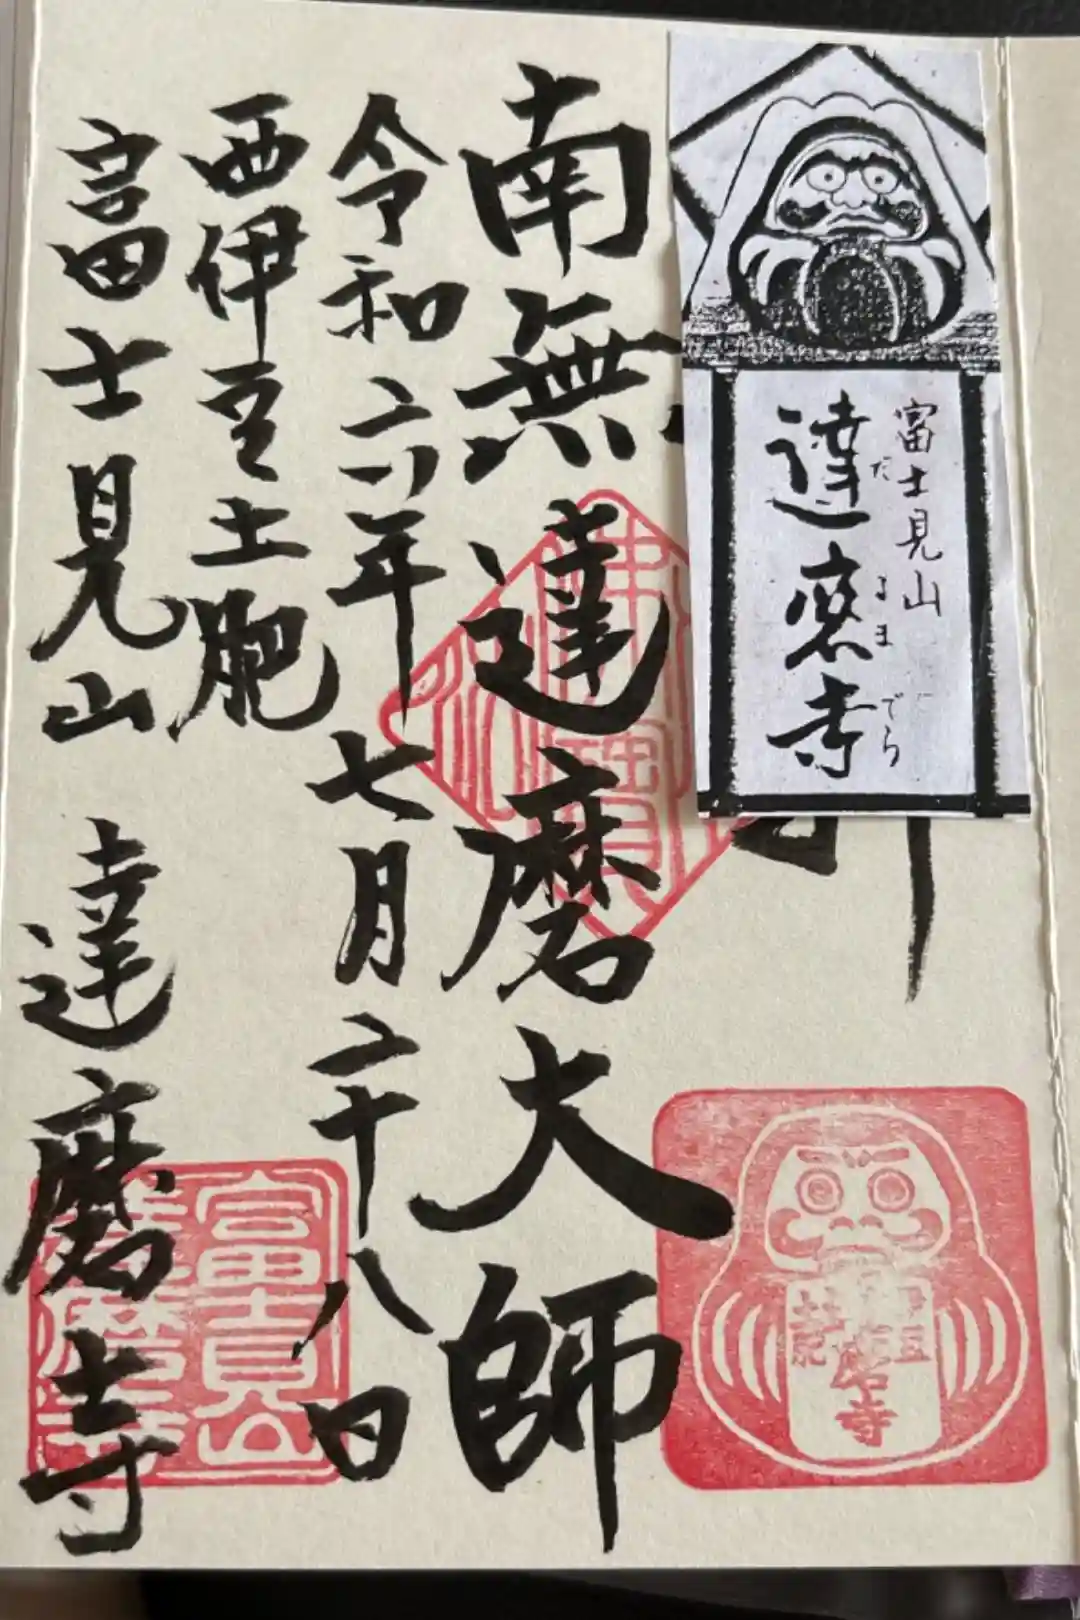 富士見山
達磨寺
だ
るま
でら
南無達磨大師
令和六年七月二十八日
西伊豆土肥
富士見山 達磨寺
富士見山
達磨寺
伊豆
達磨寺
土肥